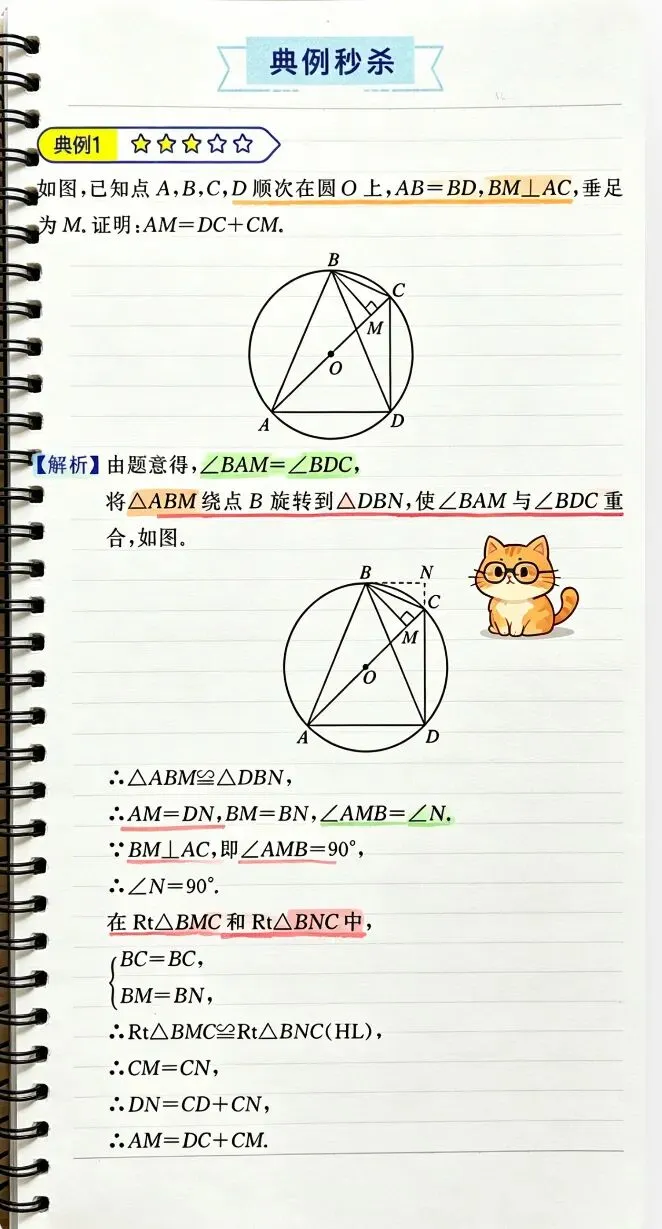 典例秒杀
典例1 ☆☆☆☆☆
如图,已知点 A,B,C,D 顺次在圆 O 上,AB=BD,BM⊥AC,垂足
为 M.证明:AM=DC+CM.
B
C
M
O
A
D
【解析】由题意得,∠BAM=∠BDC,
将△ABM 绕点 B 旋转到△DBN,使∠BAM 与∠BDC 重
合,如图。
B
N
C
M
O
A
D
∴△ABM≌△DBN,
∴AM=DN,BM=BN,∠AMB=∠N.
∵BM⊥AC,即∠AMB=90°,
∴∠N=90°.
在 Rt△BMC 和 Rt△BNC 中,
BC=BC,
BM=BN,
∴Rt△BMC≌Rt△BNC(HL),
∴CM=CN,
∴DN=CD+CN,
∴AM=DC+CM.